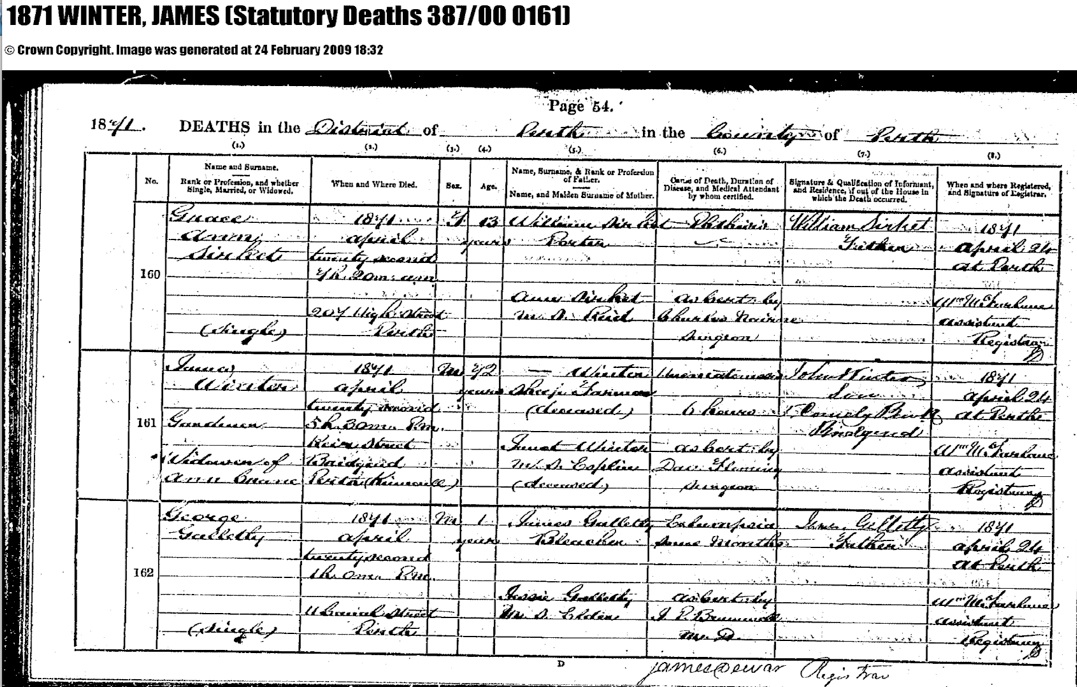 1871 WINTER, JAMES (Statutory Deaths 387/00 0161)
© Crown Copyright. Image was generated at 24 February 2009 18:32
Page 54.
1871. DEATHS in the District of Perth in the County of Perth
(1.) (2.) (3.) (4.) (5.) (6.) (7.) (8.)
No.
Name and Surname.
Rank or Profession, and whether Single, Married, or Widowed.
When and Where Died.
Sex.
Age.
Name, Surname, & Rank or Profession of Father.
Name, and Maiden Surname of Mother.
Cause of Death, Duration of Disease, and Medical Attendant by whom certified.
Signature & Qualification of Informant, and Residence, if out of the House in which the Death occurred.
When and where Registered, and Signature of Registrar.
160
Grace
Ann
(Single)
1871
April
twenty second
7h. 20m. a.m.
207 High Street
Perth
F
13
years
William
Porter
M.S. Reid
Phthisis
as cert. by
Charles Nairne
Surgeon
William
Father
1871
April 24
at Perth
Wm McFarlane
Assistant
Registrar
161
James
Winter
Gardener
Widower of
Ann
1871
April
twenty second
5h. 30m. P.m.
Keir Street
Bridgend
Perth (Kinnoull)
M
72
years
— Winter
Sheep Farmer
(deceased)
Janet Winter
M.S. Esplin
(deceased)
6 hours
as cert. by
Dav. Fleming
Surgeon
John Winter
Son
Bank
1871
April 24
at Perth
Wm McFarlane
Assistant
Registrar
162
George
Galletly
(Single)
1871
April
twenty second
1h. 0m. P.m.
Canal Street
Perth
M
1
years
James Galletly
Bleacher
Jessie Galletly
M.S.
Eclampsia
some Months
as cert. by
M.D.
James Galletly
Father
1871
April 24
at Perth
Wm McFarlane
Assistant
Registrar
D
James Dewar Registrar